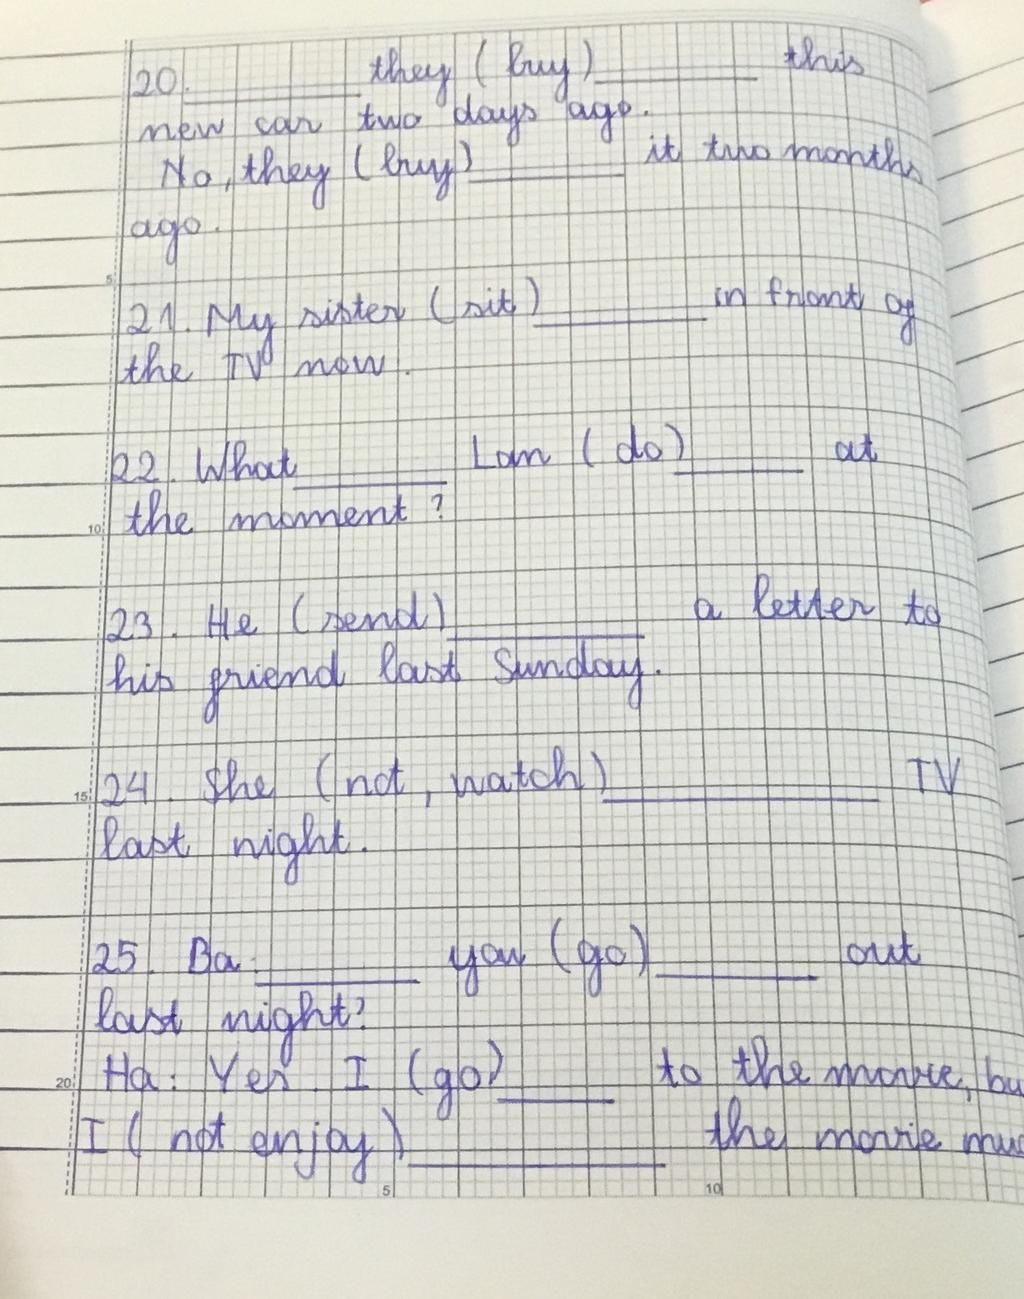 20. ________ they ( buy ) ________ this
new car two days ago.
No, they ( buy ) ________ it two months
ago.
5
21. My sister ( sit ) ________ in front of
the TV now.
22. What ________ Lan ( do ) ________ at
the moment ?
10
23. He ( send ) ________ a letter to
his friend last Sunday.
24. She ( not , watch ) ________ TV
15
last night.
25. Ba: ________ you ( go ) ________ out
last night?
20
Ha: Yes I ( go ) ________ to the movie, bu
I ( not enjoy ) ________ the movie mu
5 10